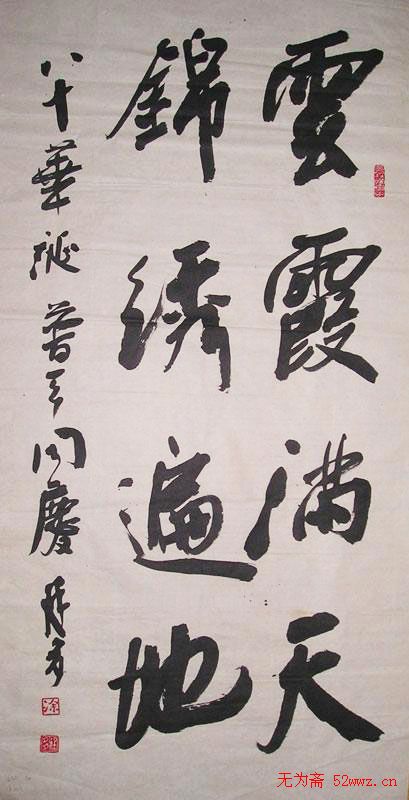 雲霞满天
錦绣遍地
八十華诞 普天同慶
无为斋 52wwz.cn